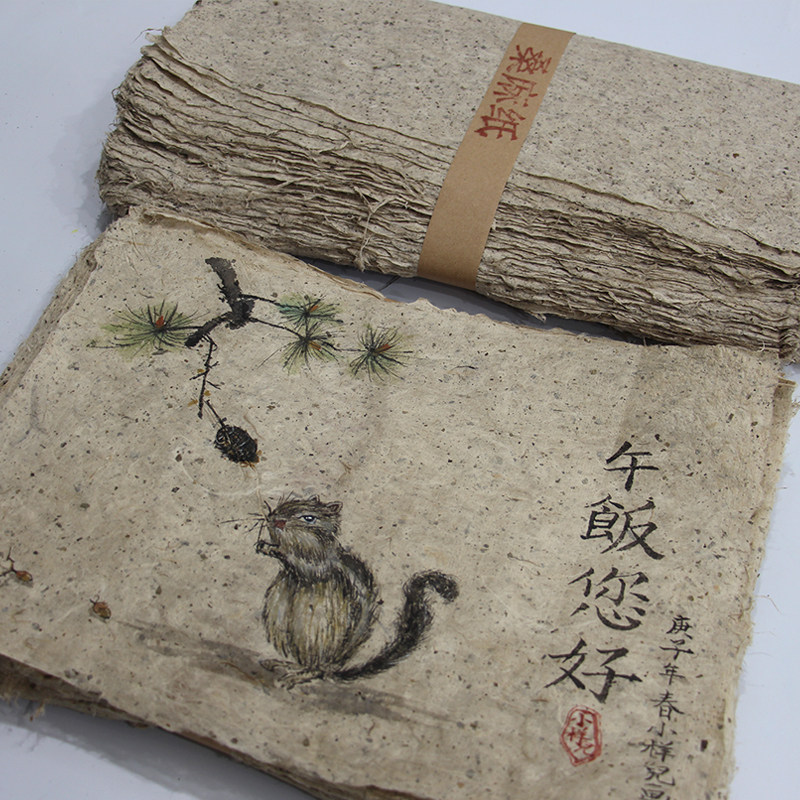 桑麻纸
午飯您好
庚子年春小祥兒画